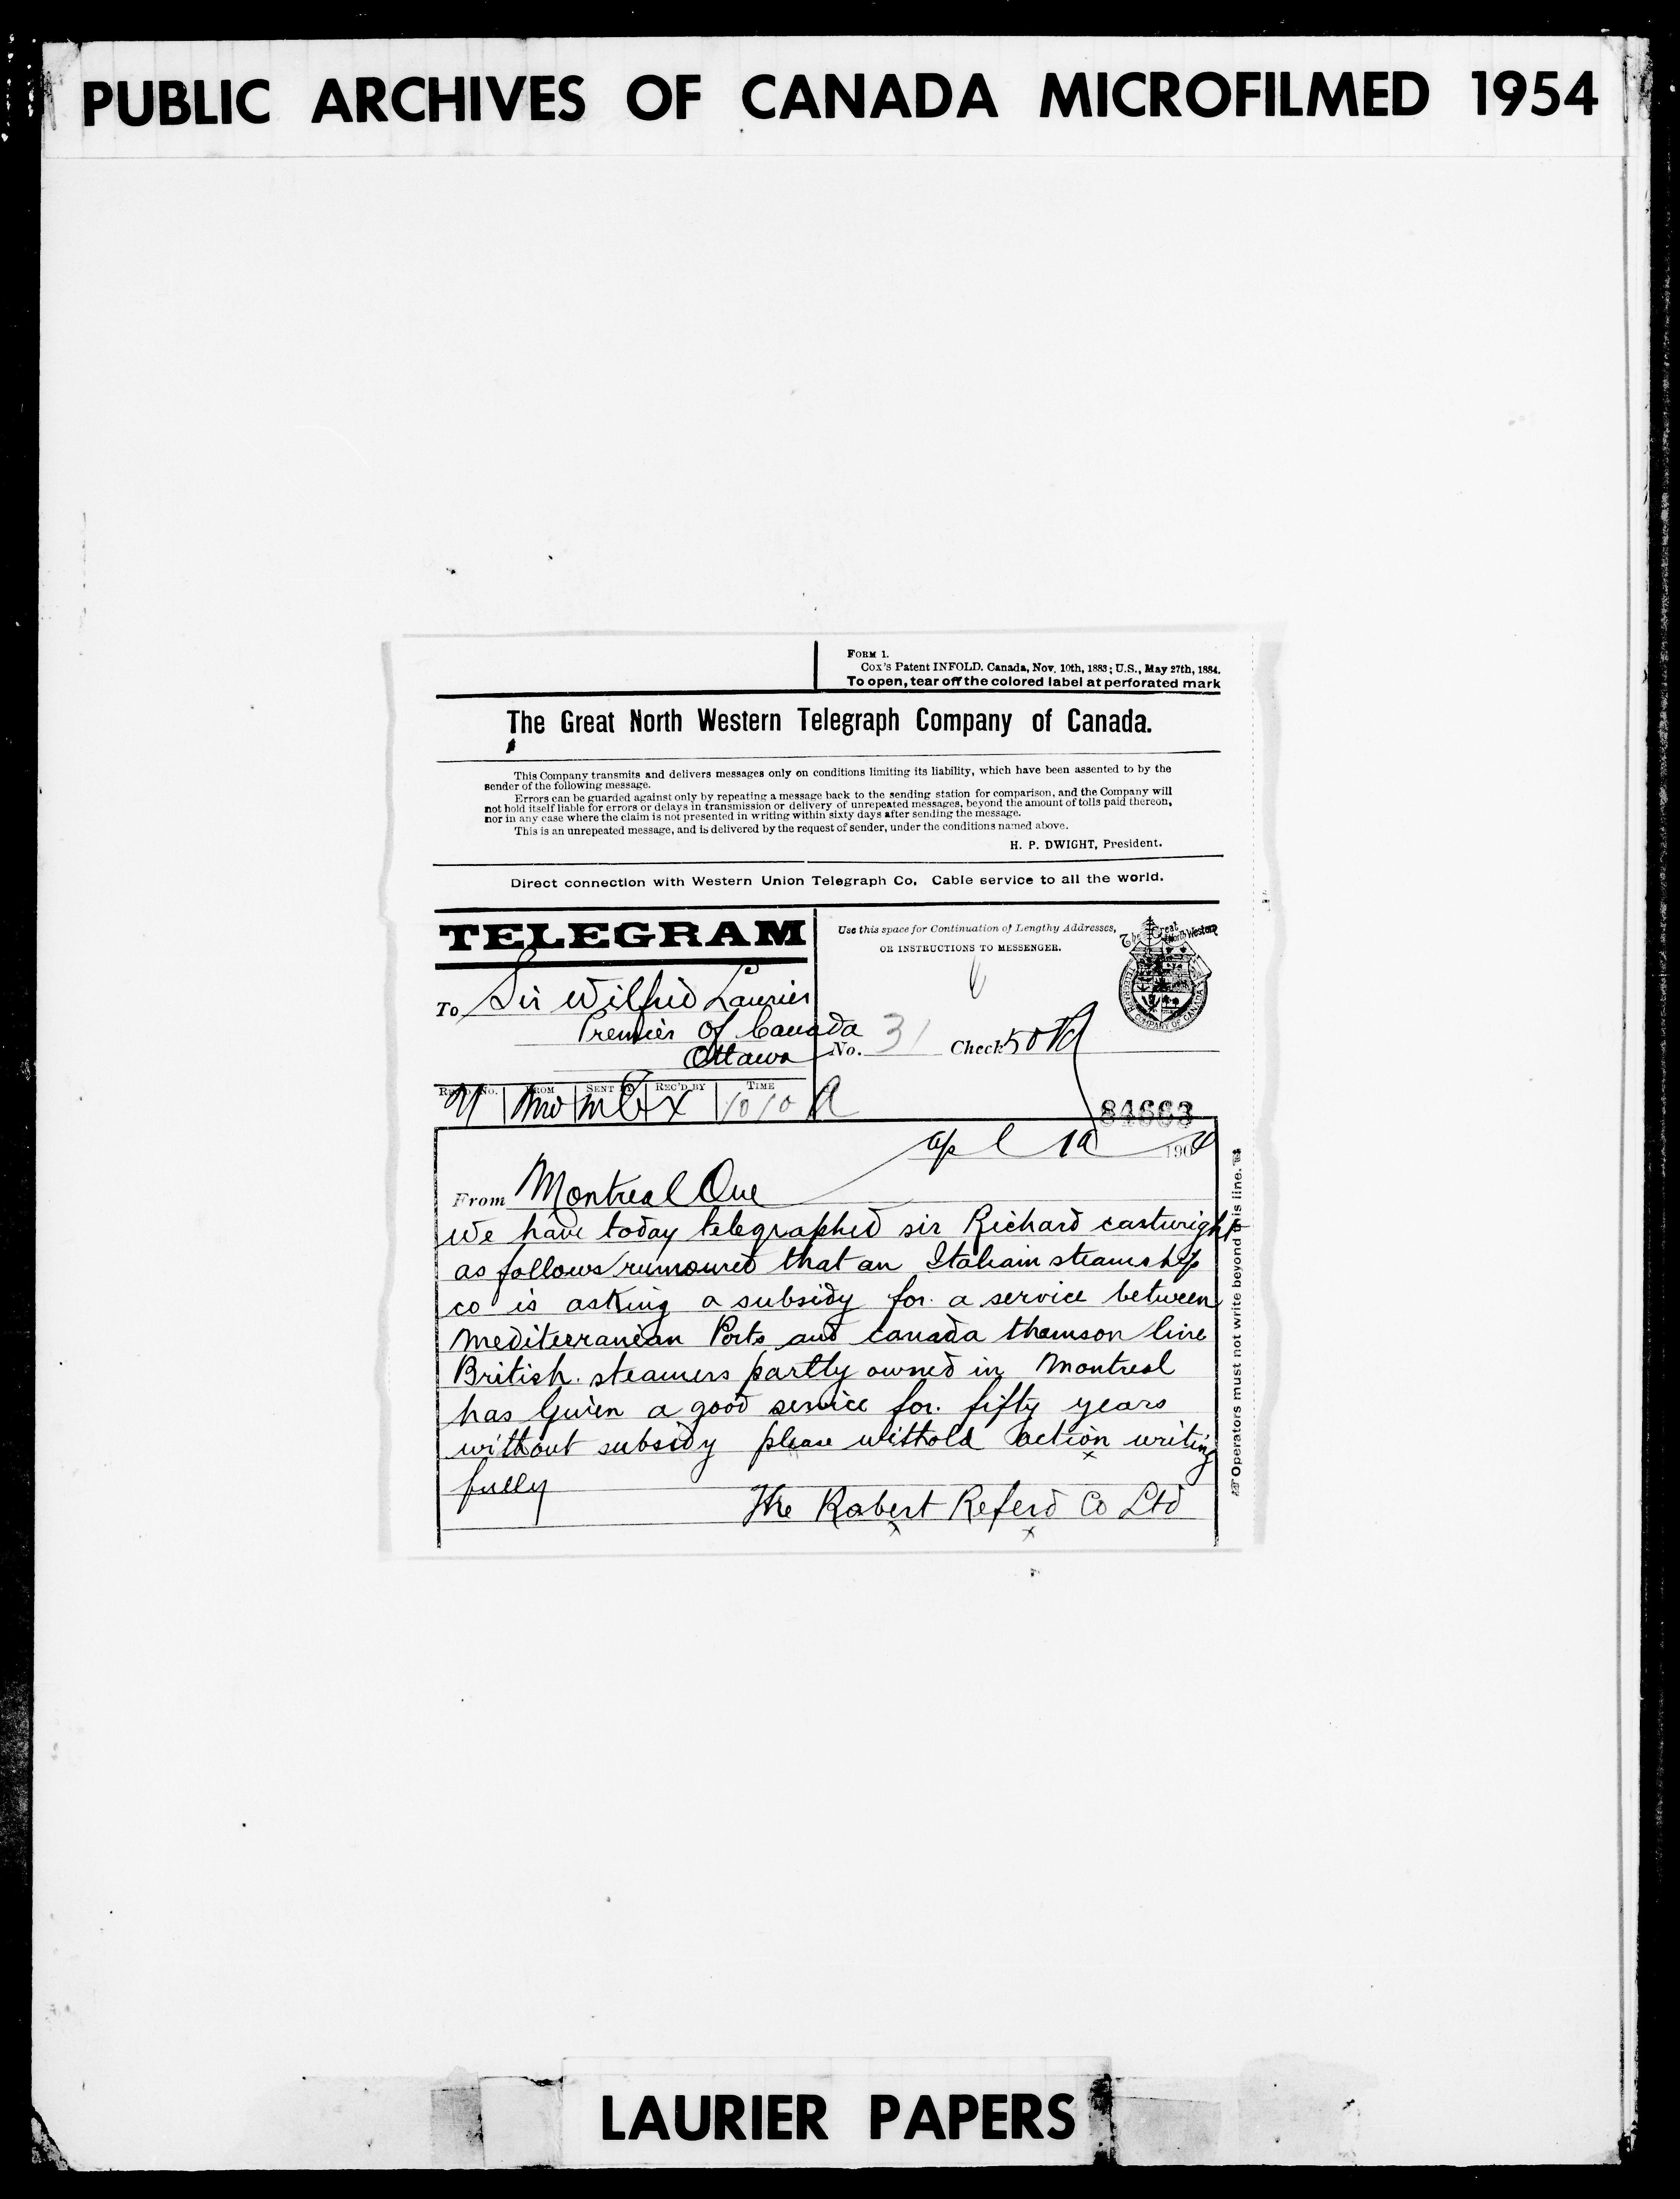 PUBLIC ARCHIVES OF CANADA MICROFILMED 1954
FORM 1.
Cox's Patent INFOLD. Canada, Nov. 10th, 1883; U.S., May 27th, 1884.
To open, tear off the colored label at perforated mark
The Great North Western Telegraph Company of Canada.
This Company transmits and delivers messages only on conditions limiting its liability, which have been assented to by the
sender of the following message.
Errors can be guarded against only by repeating a message back to the sending station for comparison, and the Company will
not hold itself liable for errors or delays in transmission or delivery of unrepeated messages, beyond the amount of tolls paid thereon,
nor in any case where the claim is not presented in writing within sixty days after sending the message.
This is an unrepeated message, and is delivered by the request of sender, under the conditions named above.
H. P. DWIGHT, President.
Direct connection with Western Union Telegraph Co, Cable service to all the world.
TELEGRAM
Use this space for Continuation of Lengthy Addresses,
OR INSTRUCTIONS TO MESSENGER.
The Great North Western
TELEGRAPH COMPANY OF CANADA
To Sir Wilfrid Laurier
Premier of Canada
Ottawa
No. 31 Check 50
No. FROM SENT BY REC'D BY TIME
1010 a
84663
Apl 19 190
From Montreal Que
We have today telegraphed sir Richard cartwright
as follows rumoured that an Italiain steamship
co is asking a subsidy for a service between
Mediterranean Ports and canada thomson line
British steamers partly owned in Montreal
has Given a good service for fifty years
without subsidy please withold action writing
fully
The Robert Referd Co Ltd
Operators must not write beyond this line.
LAURIER PAPERS